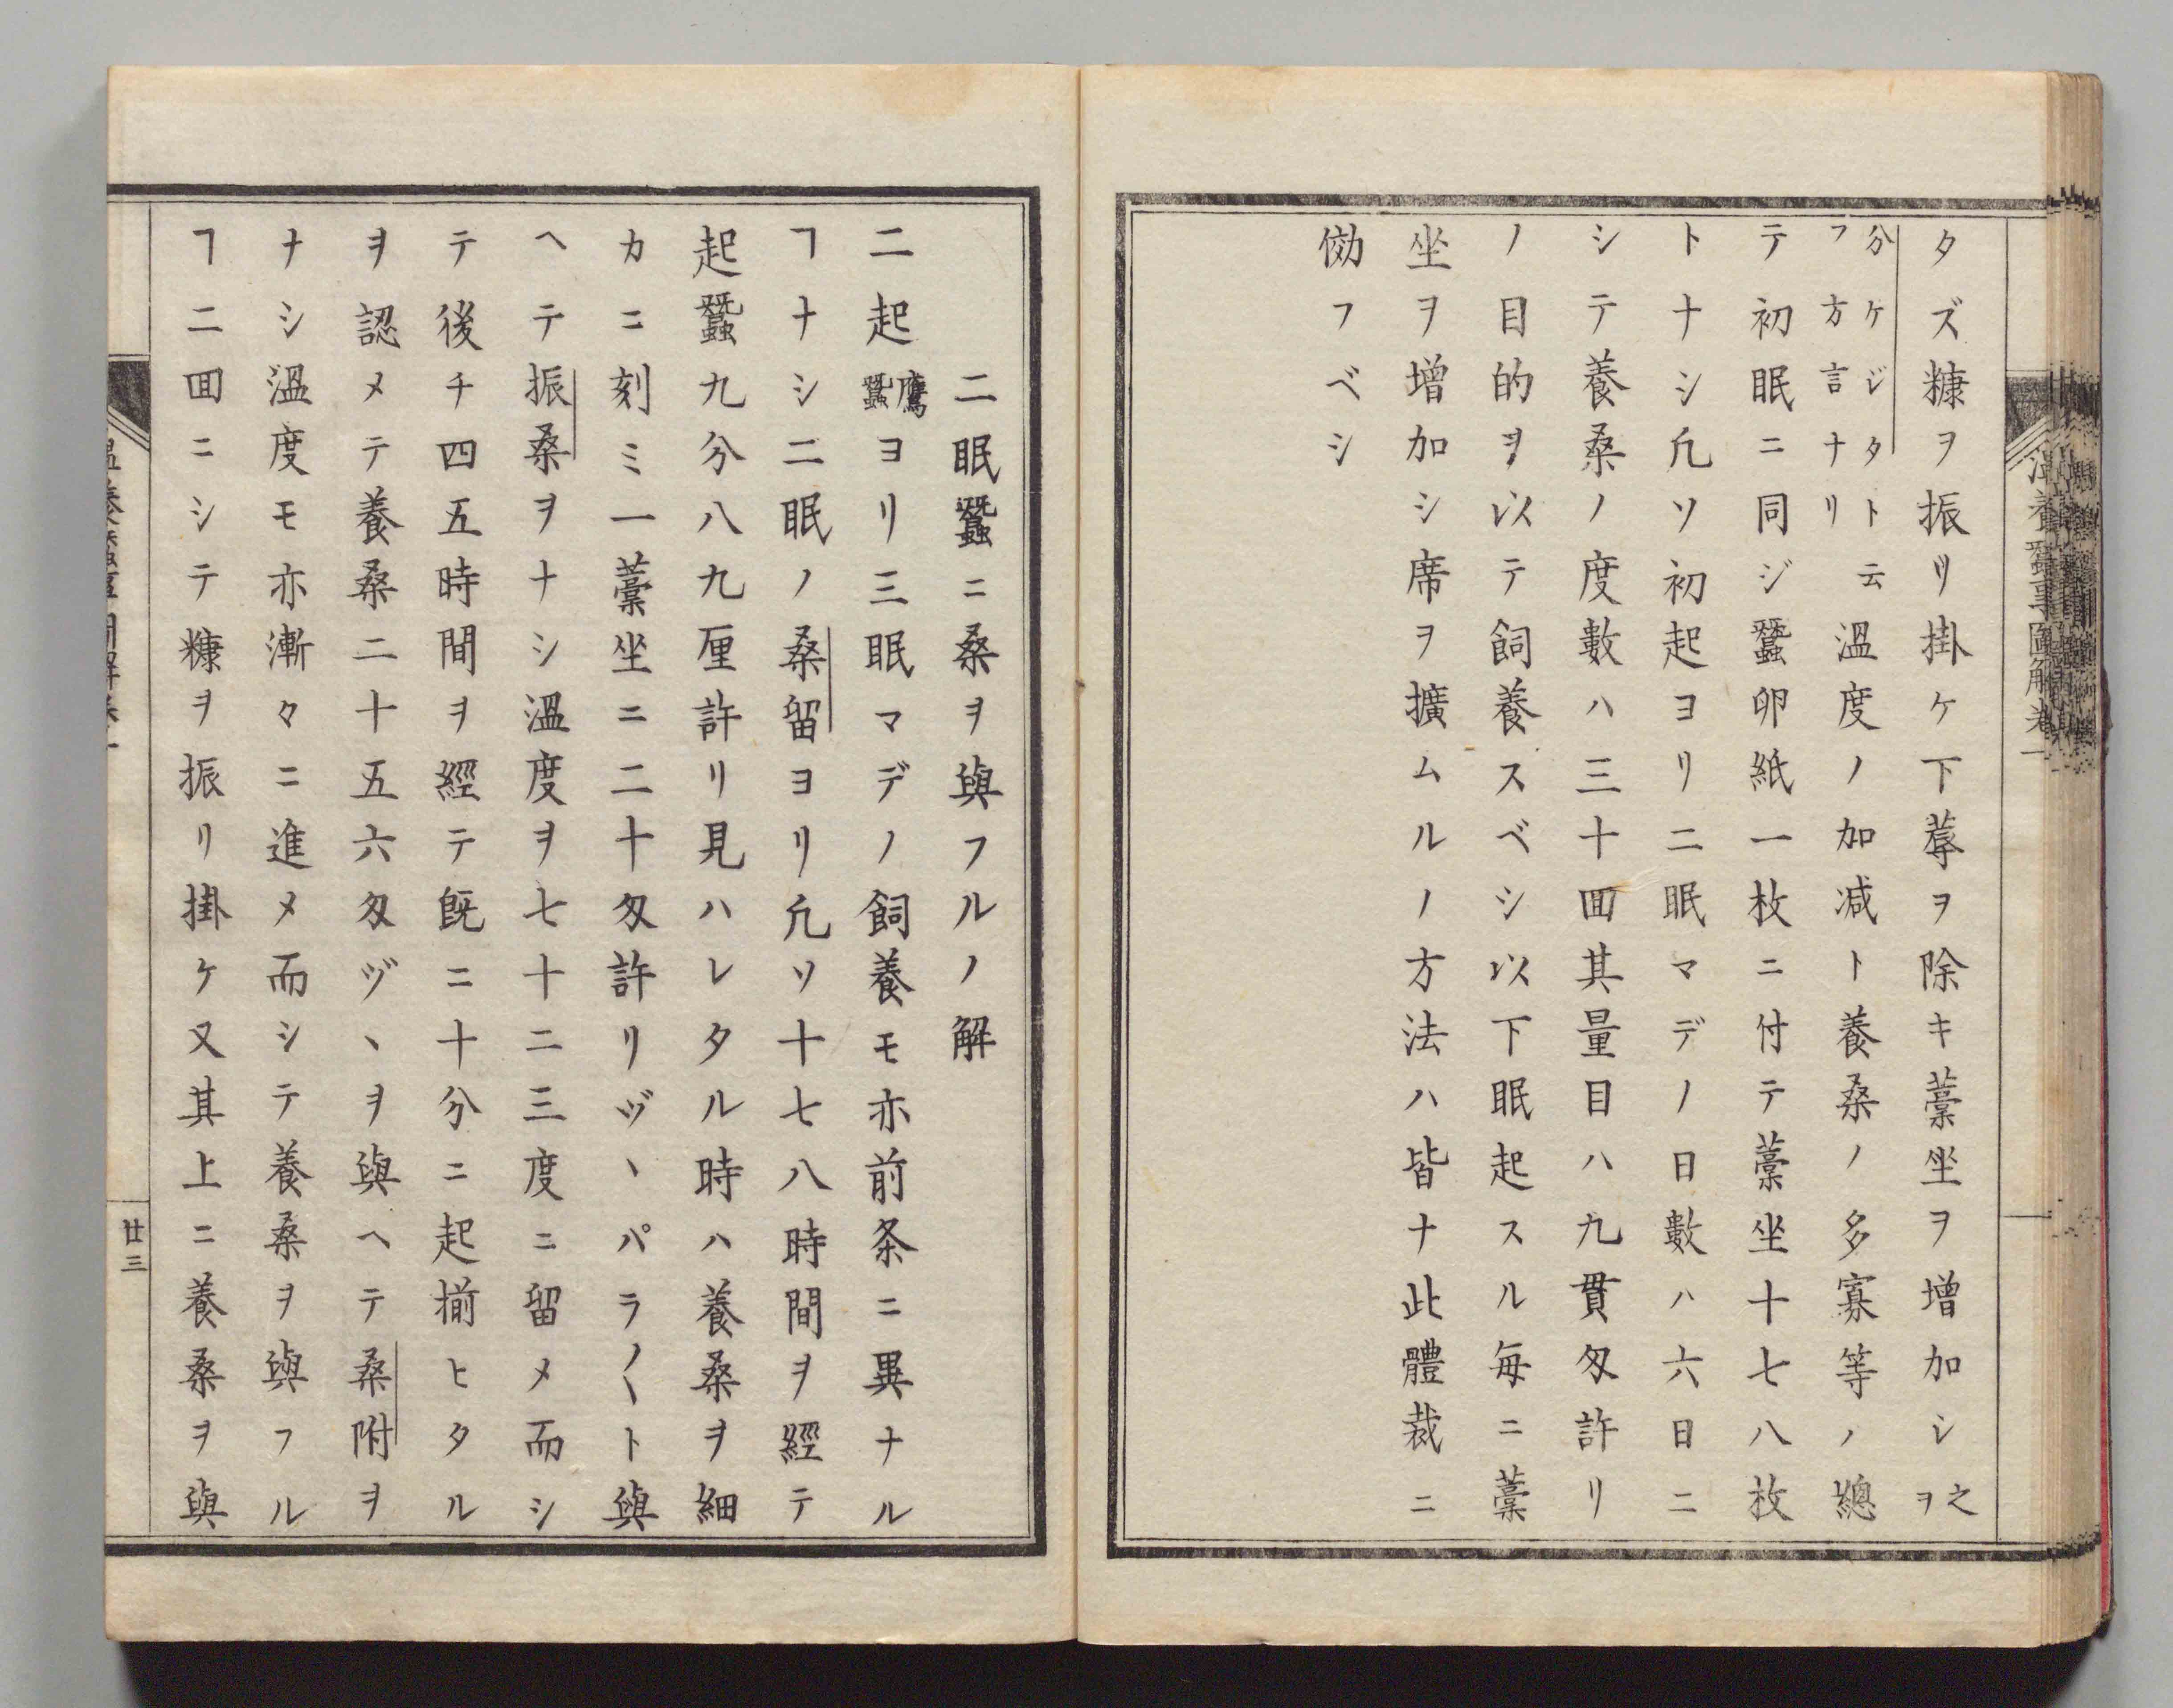 タズ糠ヲ振リ掛ケ下蓐ヲ除キ藁坐ヲ增加シ之ヲ
分ケジタト云フ方言ナリ溫度ノ加減ト養桑ノ多寡等ノ總
テ初眠ニ同ジ蠶卵紙一枚ニ付テ藁坐十七八枚
トナシ凡ソ初起ヨリ二眠マデノ日數ハ六日ニ
シテ養桑ノ度數ハ三十回其量目ハ九貫匁許リ
ノ目的ヲ以テ飼養スベシ以下眠起スル毎ニ藁
坐ヲ增加シ席ヲ擴ムルノ方法ハ皆ナ此體裁ニ
傚フベシ
二眠蠶ニ桑ヲ與フルノ解
二起鷹蠶ヨリ三眠マデノ飼養モ亦前条ニ異ナル
ヿナシ二眠ノ桑留ヨリ凡ソ十七八時間ヲ經テ
起蠶九分八九厘許リ見ハレタル時ハ養桑ヲ細
カニ刻ミ一藁坐ニ二十匁許リヅヽパラ〳〵ト與
ヘテ振桑ヲナシ溫度ヲ七十二三度ニ留メ而シ
テ後チ四五時間ヲ經テ既ニ十分ニ起揃ヒタル
ヲ認メテ養桑二十五六匁ヅヽヲ與ヘテ桑附ヲ
ナシ溫度モ亦漸々ニ進メ而シテ養桑ヲ與フル
ヿ二回ニシテ糠ヲ振リ掛ケ又其上ニ養桑ヲ與
廿三